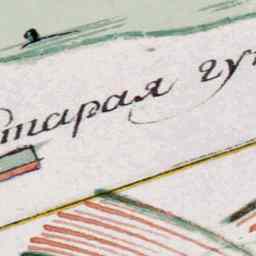 старая гу